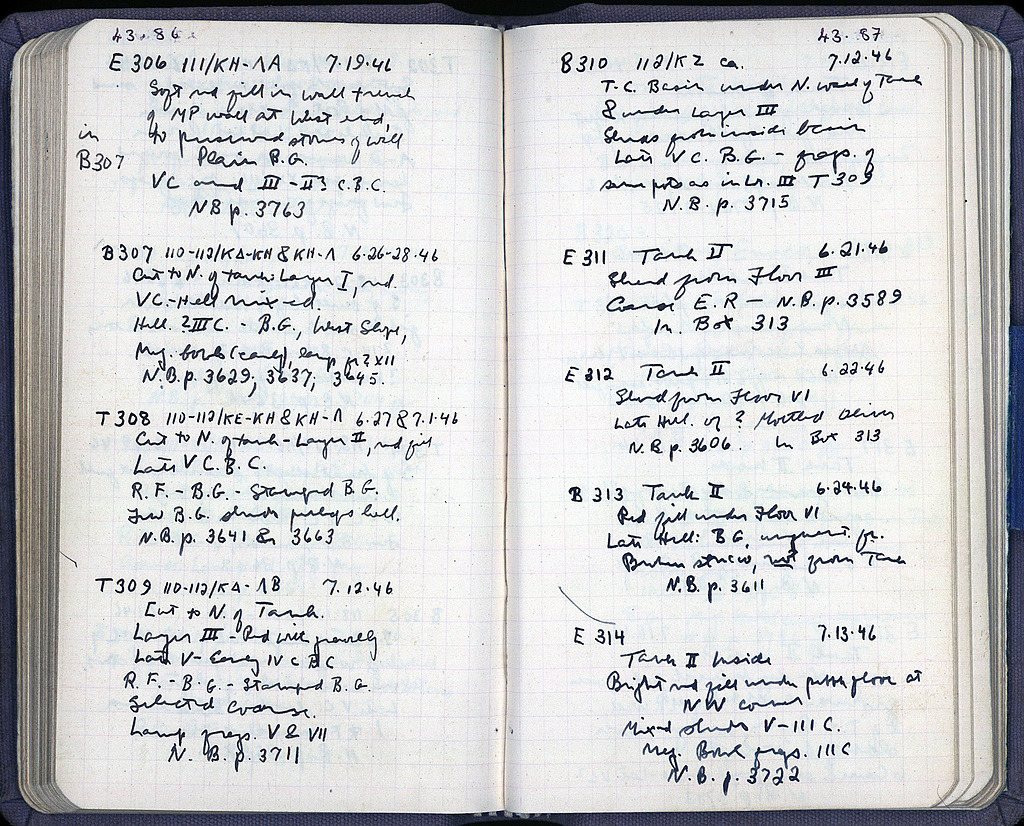 43.86
E 306 111/KH-ΛA 7.19.46
Soft red fill in wall trench
of MP wall at West end,
to preserved stones of wall
in
B307
Plain B.G.
VC and III-II? C.B.C.
NB p. 3763
B307 110-112/KΔ-KH & KH-Λ 6.26-28.46
Cut to N. of tank: Layer I, red.
VC.-Hell mixed.
Hell. ?IIIC. - B.G., West Slope,
Meg. bowls (early), lamp fr? XII
N.B. p. 3629, 3637, 3645.
T 308 110-112/KE-KH & KH-Λ 6.27 & 7.1.46
Cut to N. of tank - Layer II, red fill
Late V C. B. C.
R.F. - B.G. - Stamped B.G.
Few B.G. sherds perhaps hell.
N.B. p. 3641 & 3663
T 309 110-112/KΔ-ΛB 7.12.46
Cut to N. of Tank.
Layer III - Red with
Late V - Early IV C B C
R.F. - B.G. - Stamped B.G.
Selected coarse.
Lamp frags. V & VII
N. B. p. 3711
43.87
B310 112/KZ ca. 7.12.46
T.C. Basin under N. wall of Tank
& under Layer III
Sherds from inside basin
Late V C. B.G. - frags. of
same pots as in Lr. III T 309
N.B. p. 3715
E 311 Tank II 6.21.46
Sherd from Floor III
Coarse E.R - N.B. p. 3589
In Box 313
E 312 Tank II 6.22.46
Sherd from Floor VI
Late Hell. or ? Mottled
N.B. p. 3606. In Box 313
B 313 Tank II 6.24.46
Red fill under Floor VI
Late Hell: BG, unguent. fr.
Broken stucco, not from Tank
N.B. p. 3611
E 314 7.13.46
Tank II Inside
Bright red fill under floor at
NW corner
Mixed sherds V-III C.
Meg. Bowl frags. III C
N.B. p. 3722